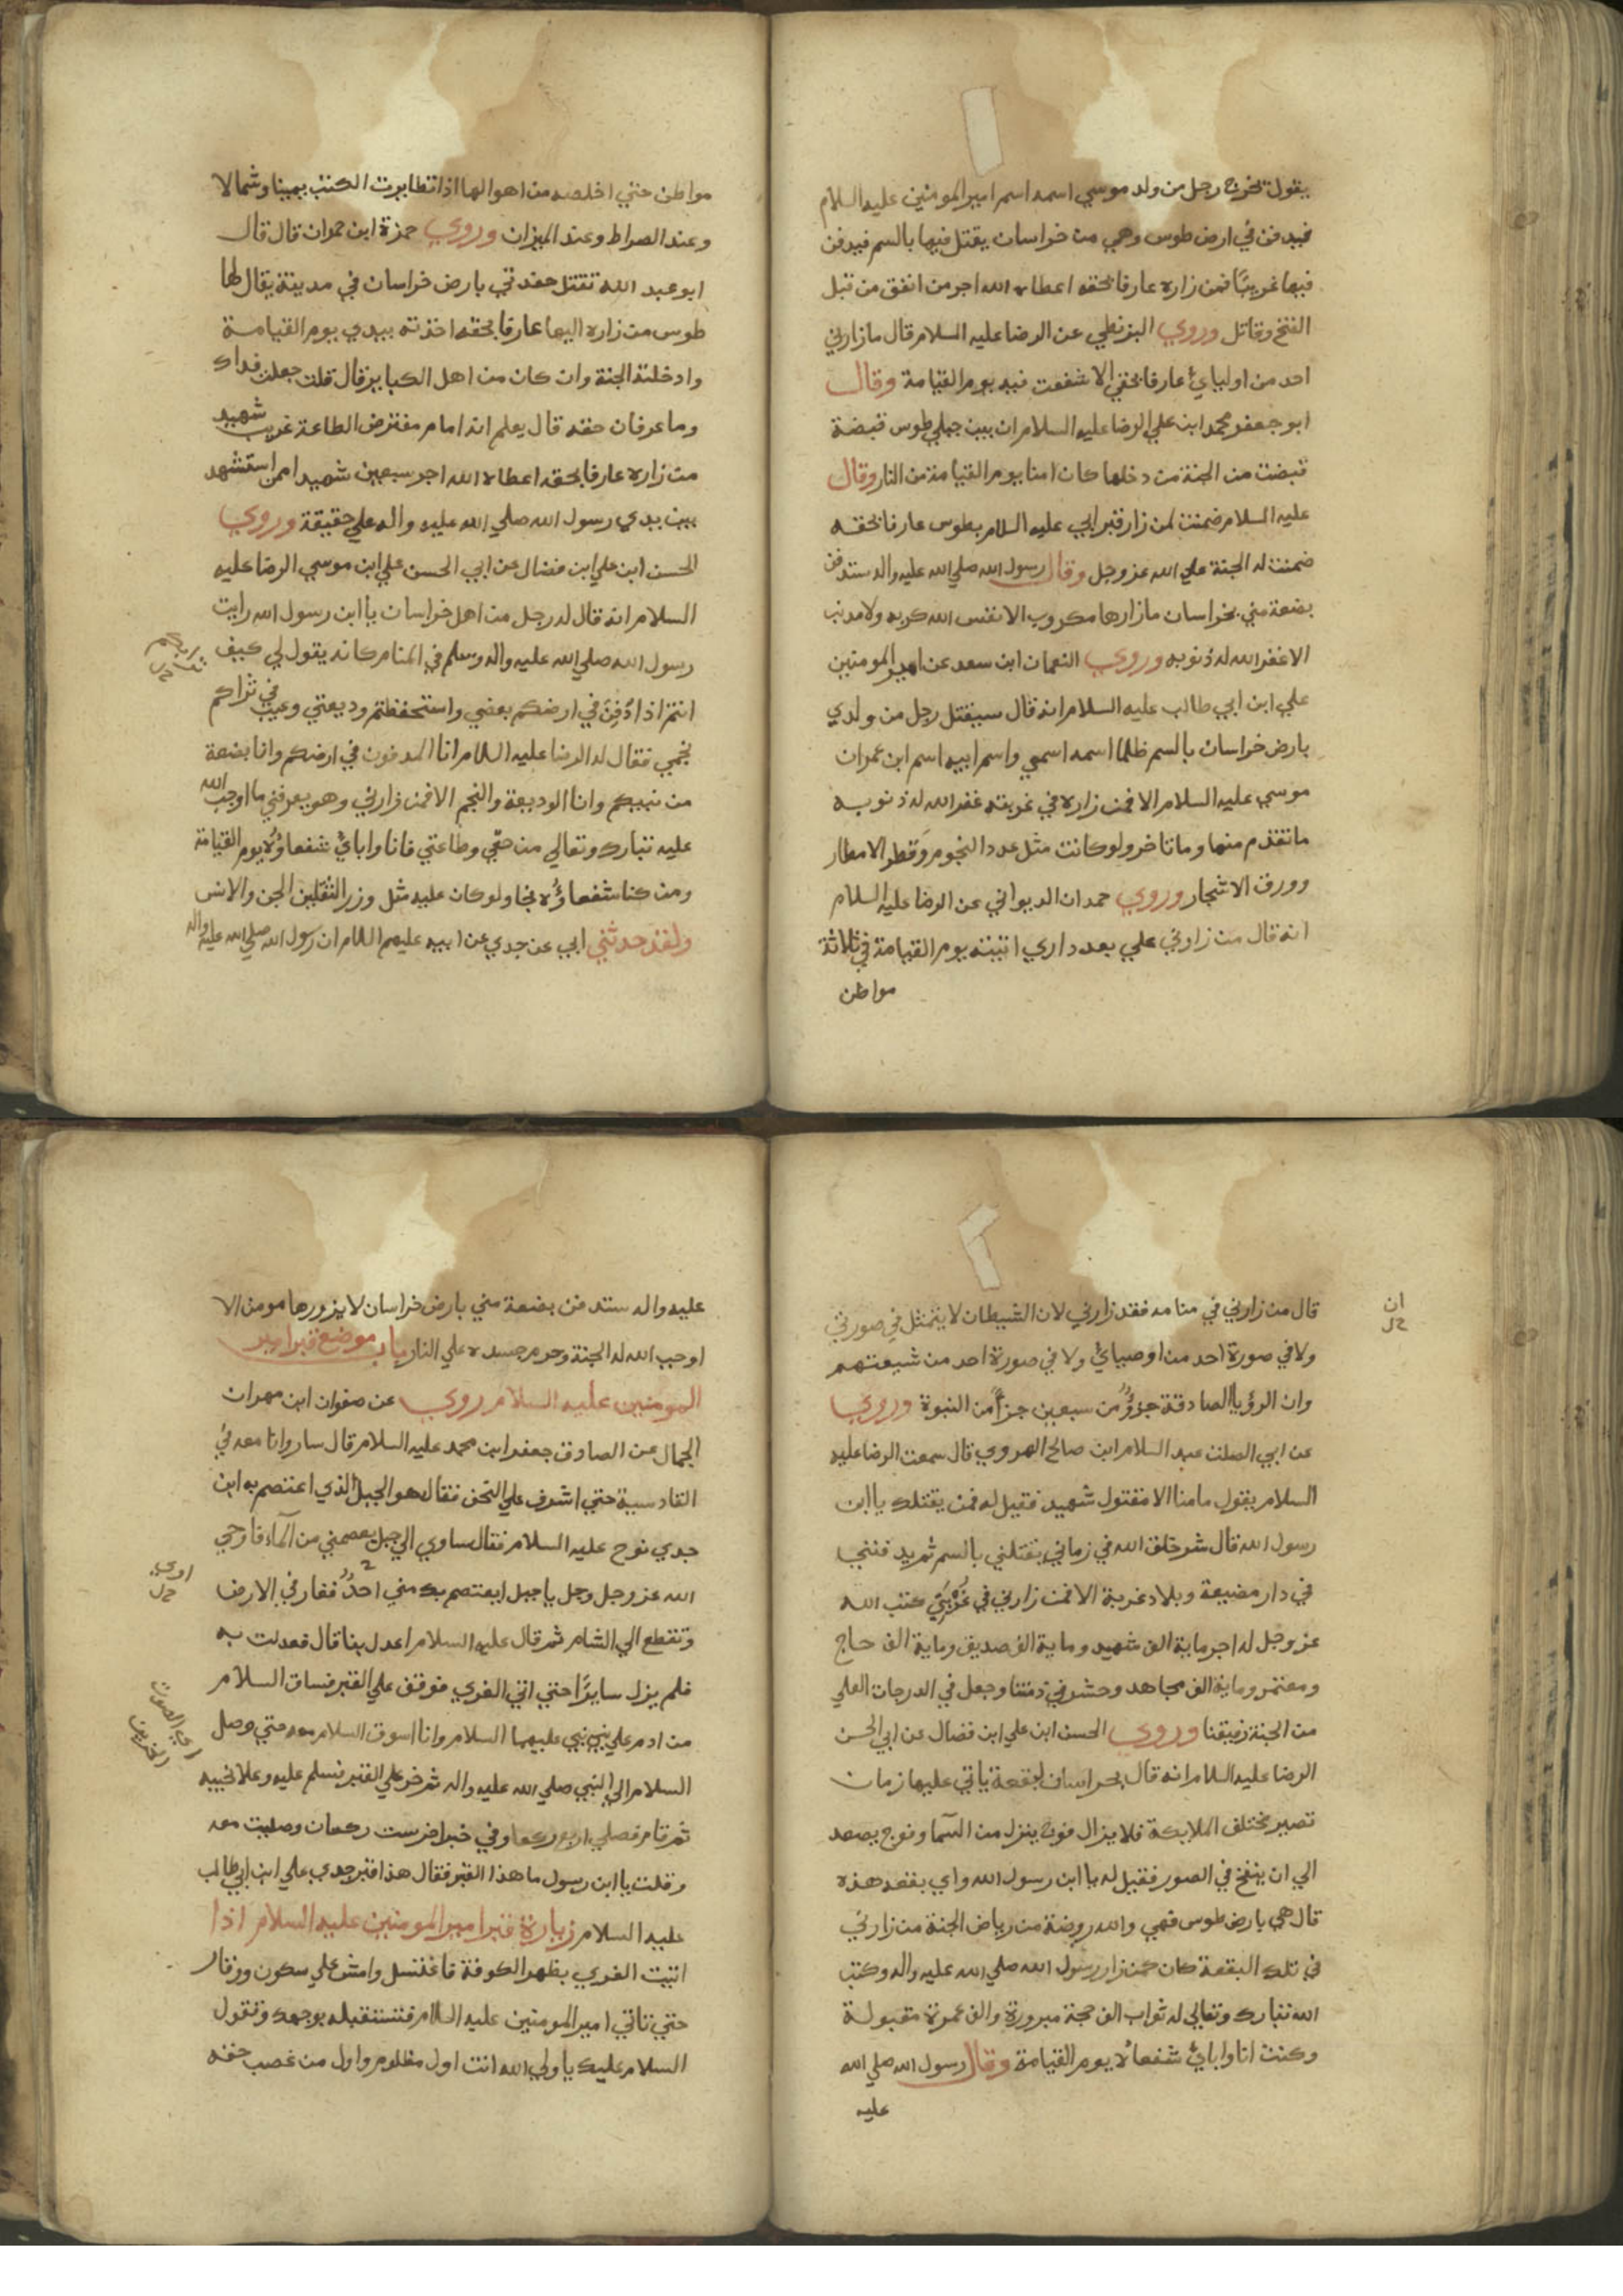 يقول تخرج رجل من ولد موسي اسمه اسم امير المومنين عليه السلام
فيدفن في ارض طوس وهي من خراسان يقتل فيها بالسم فيدفن
فيها غريبًا فمن زاره عارفا بحقه اعطاه الله اجر من انفق من قبل
الفتح وقاتل وروي البزنطي عن الرضا عليه السلام قال ما زارني
احد من اوليايُ عارفا بحقي الا شفعت فيه يوم القيامة وقال
ابو جعفر محمد ابن علي الرضا عليه السلام ان بين جبلي طوس قبضة
قبضت من الجنة من دخلها كان امنا يوم القيامة من النار وقال
عليه السلام ضمنت لمن زار قبر ابي عليه السلام بطوس عارفا بحقه
ضمنت له الجنة علي الله عز وجل وقال رسول الله صلي الله عليه واله ستدفن
بضعة مني بخراسان ما زارها مكروب الا نفس الله كربه ولا مذنب
الا غفر الله له ذنوبه وروي النعمان ابن سعد عن امير المومنين
علي ابن ابي طالب عليه السلام انه قال سيقتل رجل من ولدي
بارض خراسان بالسم ظلما اسمه اسمي واسم ابيه اسم ابن عمران
موسي عليه السلام الا فمن زاره في غربته غفر الله له ذنوبه
ما تقدم منها وما تاخر ولو كانت مثل عدد النجوم وَقطر الامطار
وورق الاشجار وروي حمدان الديواني عن الرضا عليه السلام
انه قال من زارني علي بعد داري اتيته يوم القيامة في ثلاثة
مواطن
مواطن حتي اخلصه من اهوالها اذا تطايرت الكتب يمينا وشمالا
وعند الصراط وعند الميزان وروي حمزة ابن حمران قال قال
ابو عبد الله تقتل حفدتي بارض خراسان في مدينة يقال لها
طوس من زاره اليها عارفا بحقه اخذته بيدي يوم القيامة
وادخلته الجنة وان كان من اهل الكباير قال قلت جعلت فداك
وما عرفان حقه قال يعلم انه امام مفترض الطاعة غريب شهيد
من زاره عارفا بحقه اعطاه الله اجر سبعين شهيدا ممن استشهد
بين يدي رسول الله صلي الله عليه واله علي حقيقة وروي
الحسن ابن علي ابن فضال عن ابي الحسن علي ابن موسي الرضا عليه
السلام انه قال له رجل من اهل خراسان يا ابن رسول الله رايت
رسول الله صلي الله عليه واله وسلم في المنام كانه يقول لي كيف
انتم اذا دُفِنَ في ارضكم بعضي واستحفظتم وديعتي وغيب في ثراكم
نجمي فقال له الرضا عليه السلام انا المدفون في ارضكم وانا بضعة
من نبيكم وانا الوديعة والنجم الا فمن زارني وهو يعرفني ما اوجب الله
عليه تبارك وتعالي من حقّي وطاعتي فانا واباىُ شفعاوُهُ يوم القيامة
ومن كنا شفعاوُه نجا ولو كان عليه مثل وزر الثقلين الجن والانس
ولقد حدثني ابي عن جدي عن ابيه عليهم السلام ان رسول الله صلي الله عليه واله
قال من زارني في منامه فقد زارني لان الشيطان لا يتمثل في صورتي
ولا في صورة احد من اوصيايُ ولا في صورة احد من شيعتهم
ان
وان الرؤيا الصادقة جزؤٌ من سبعين جزأً من النبوة وروي
عن ابي الصلت عبد السلام ابن صالح الهروي قال سمعت الرضا عليه
السلام يقول ما منا الا مقتول شهيد فقيل له فمن يقتلك يا ابن
رسول الله قال شر خلق الله في زماني يقتلني بالسم ثم يدفنني
في دار مضيعة وبلاد غربة الا فمن زارني في غُرْبَتِي كتب الله
عز وجل له اجر ماية الف شهيد وماية الف صديق وماية الف حاج
ومعتمر وماية الف مجاهد وحشر في زمرتنا وجعل في الدرجات العلي
من الجنة رفيقنا وروي الحسن ابن علي ابن فضال عن ابي الحسن
الرضا عليه السلام انه قال بخراسان لبقعة ياتي عليها زمان
تصير مختلف الملايكة فلا يزال فوج ينزل من السما وفوج يصعد
الي ان ينفخ في الصور فقيل له يا ابن رسول الله واي بقعه هذه
قال هي بارض طوس فهي والله روضة من رياض الجنة من زارني
في تلك البقعة كان كمن زار رسول الله صلي الله عليه واله وكتب
الله تبارك وتعالي له ثواب الف حجة مبرورة والف عمرة مقبولة
وكنت انا واباىُ شفعاهُ يوم القيامة وقال رسول الله صلي الله
عليه
عليه واله ستدفن بضعة مني بارض خراسان لا يزورها مومن الا
اوجب الله له الجنة وحرم جسده علي النار باب موضع قبر امير
المومنين عليه السلام روي عن صفوان ابن مهران
الجمال عن الصادق جعفر ابن محمد عليه السلام قال سار وانا معه في
القادسية حتي اشرف علي النجف فقال هو الجبل الذي اعتصم به ابن
جدي نوح عليه السلام فقال ساوي الي جبل يعصمني من الماء فاوحي
الله عز وجل وجل يا جبل ايعتصم بك مني احدٌ فغار في الارض
وتقطع الي الشام ثم قال عليه السلام اعدل بنا قال فعدلت به
فلم يزل سايرًا حتي اتي الغري فوقف علي القبر فساق السلام
من ادم علي نبي نبي عليهما السلام وانا اسوق السلام معه حتي وصل
السلام الي النبي صلي الله عليه واله ثم خر علي القبر فسلم عليه وعلا نحيبه
ثم قام فصلي اربع ركعات وفي خبر اخر ست ركعات وصليت معه
وقلت يا ابن رسول ما هذا القبر فقال هذا قبر جدي علي ابن ابي طالب
عليه السلام زيارة قبر امير المومنين عليه السلام اذا
اتيت الغري بظهر الكوفة فاغتسل وامش علي سكون ووقار
حتي تاتي امير المومنين عليه السلام فتستقبله بوجهك وتقول
السلام عليك يا ولي الله انت اول مظلوم واول من غصب حقه